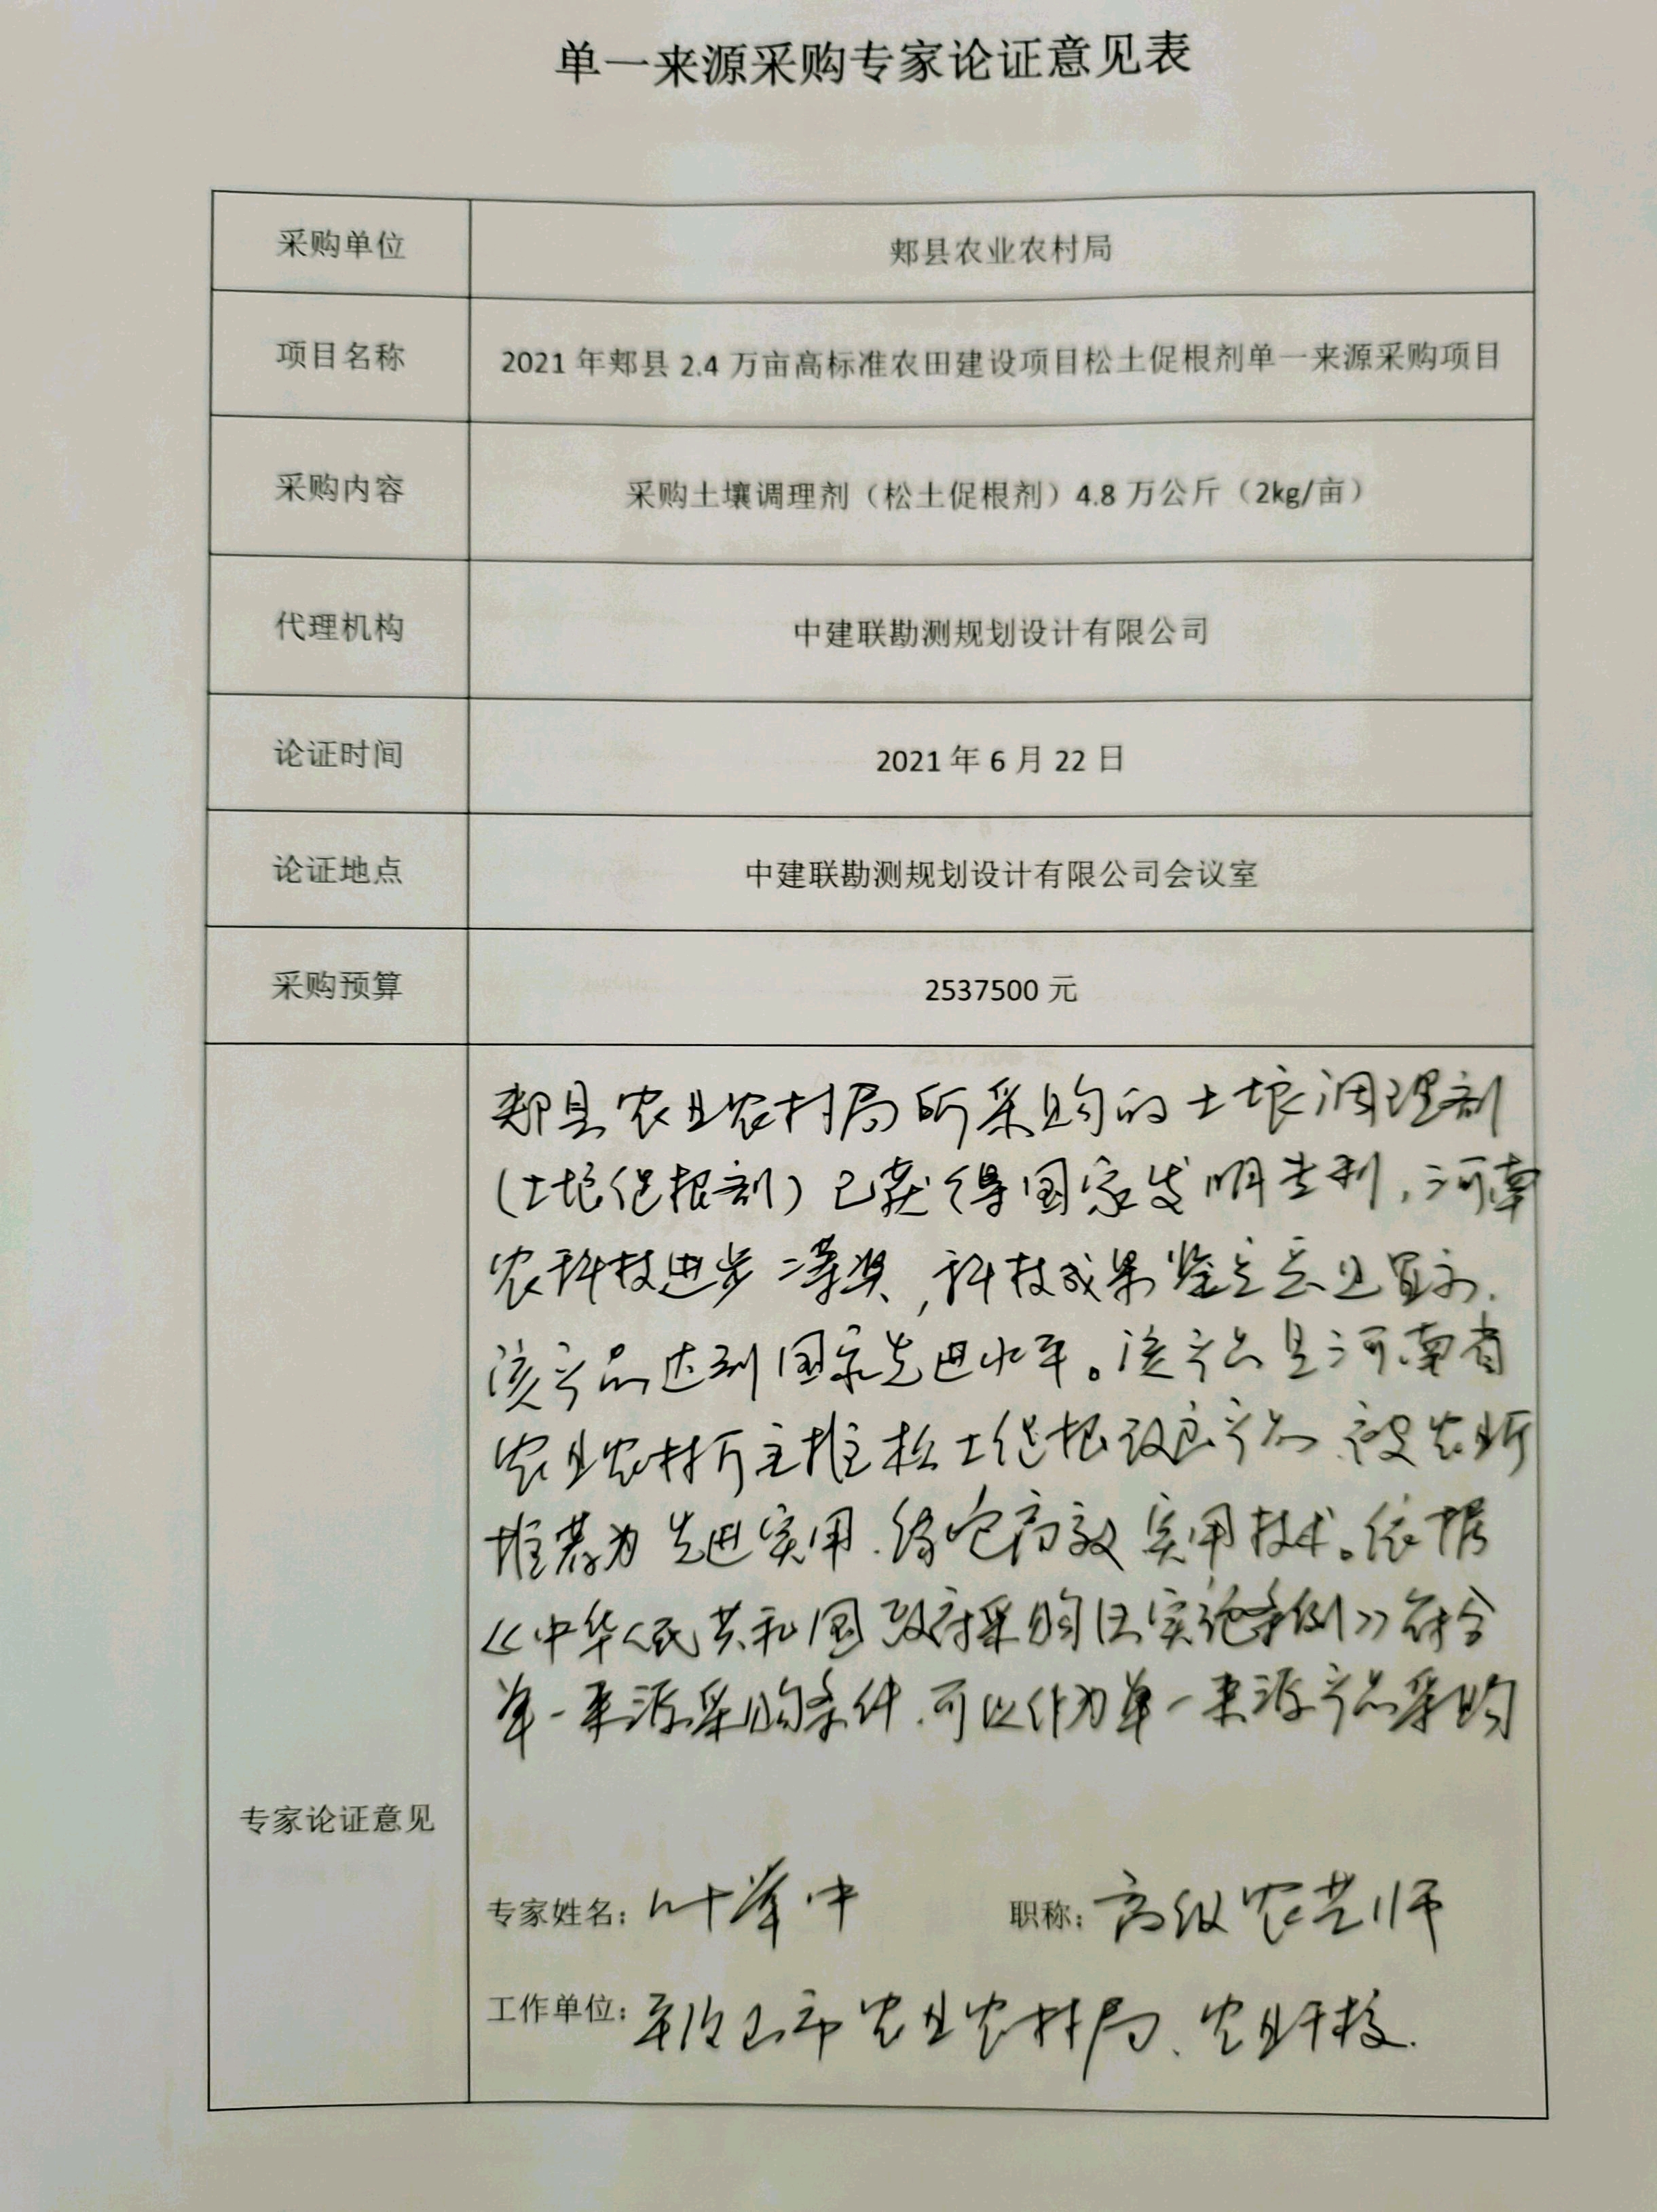 单一来源采购专家论证意见表
采购单位 郏县农业农村局
项目名称 2021年郏县2.4万亩高标准农田建设项目松土促根剂单一来源采购项目
采购内容 采购土壤调理剂（松土促根剂）4.8万公斤（2kg/亩）
代理机构 中建联勘测规划设计有限公司
论证时间 2021年6月22日
论证地点 中建联勘测规划设计有限公司会议室
采购预算 2537500元
郏县农业农村局所采购的土壤调理剂
（土壤促根剂）已获得国家发明专利，河南
农科技进步二等奖，科技成果鉴定意见显示，
该产品达到国家先进水平。该产品是河南省
农业农村厅主推松土促根改良产品，被农业厅
推荐为先进实用、绿色高效实用技术。依据
《中华人民共和国政府采购法实施条例》符合
单一来源采购条件，可以作为单一来源产品采购
专家论证意见
专家姓名： 叶 中 职称：高级农艺师
工作单位：平顶山市农业农村局、农业干校.